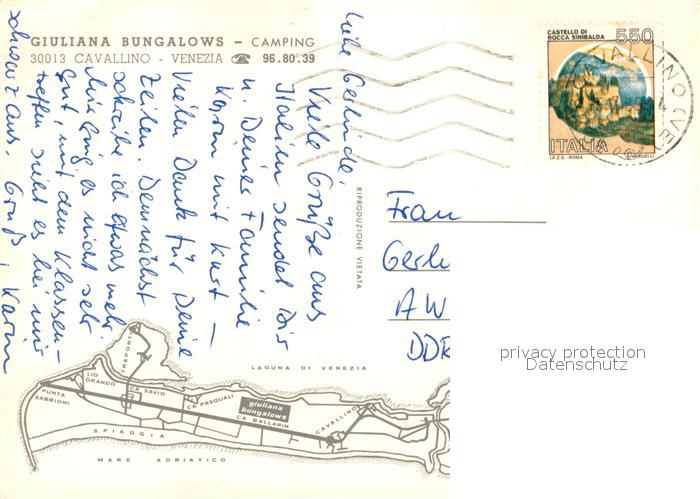 GIULIANA BUNGALOWS – CAMPING
30013 CAVALLINO - VENEZIA ☎ 96.80.39
Liebe Gerlinde,
Viele Grüße aus
Italien sendet Dir
u. Deiner Familie
Karin mit Kurt –
Vielen Dank für Deine
Zeilen. Demnächst
schreibe ich etwas mehr
Mir ging es nicht sehr
gut, mit dem Klassen-
treffen sieht es bei mir
schwarz aus. Gruß, Karin
CASTELLO DI
ROCCA SINIBALDA
550
ITALIA
I.P.Z.S. - ROMA
CAVALLINO (VE)
RIPRODUZIONE VIETATA
Frau
Gerl
AW
DDR
privacy protection
Datenschutz
LAGUNA DI VENEZIA
TREPORTI
LIO
GRANDO
CA SAVIO
PUNTA
SABBIONI
CA PASQUALI
giuliana
bungalows
CA
BALLARIN
CAVALLINO
SPIAGGIA
MARE ADRIATICO